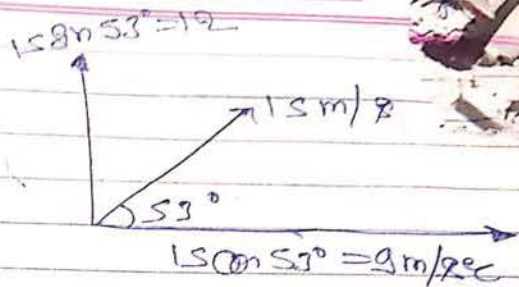 15 sin 53° = 12
15 m/s
53°
15 cos 53° = 9 m/sec